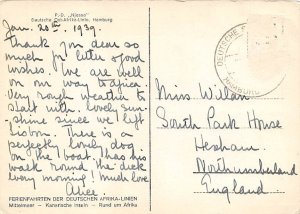 P.-D. „Njassa"
Deutsche Ost-Afrika-Linie, Hamburg
Jan. 28th. 1939.
Thank you dear so
much for letter & good
wishes. We are well
on our way to Africa.
Very rough weather to
start with & lovely sun-
shine since we left
Lisbon. There is a
perfectly lovely dog
on the boat. I has his
walk round the deck
every morning! Much love
Alice.
FERIENFAHRTEN DER DEUTSCHEN AFRIKA-LINIEN
Mittelmeer - Kanarische Inseln - Rund um Afrika
DEUTSCHE
Miss Willan
South Park House
Hexham
Northumberland
England.